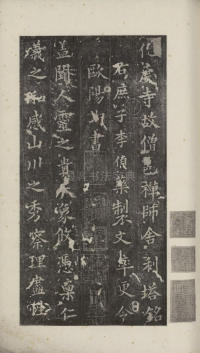 化度寺故僧邕禪師舍利塔銘
右庶子李伯藥製文 率更令
歐陽詢書
蓋聞人靈之貴天象攸憑稟仁
義之和感山川之秀察理盡性